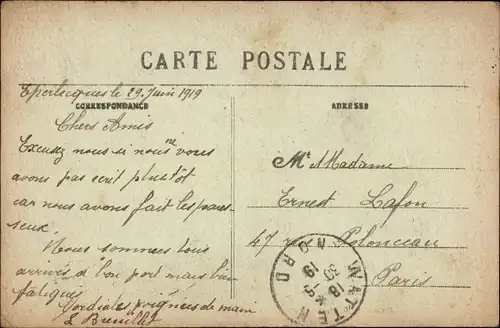 CARTE POSTALE
Eperlecques le 29 Juin 1919
CORRESPONDANCE
ADRESSE
Chers Amis
Excusez nous si nous ne vous
avons pas ecrit plustôt
car nous avons fait les pares-
seux.
Nous sommes tous
arrivés a bon port mais bien
fatigués
Cordiales poignées de main
Mr et Madame
Ernest Lafon
47 rue Polonceau
Paris
WATTEN
18
30-6
19
NORD